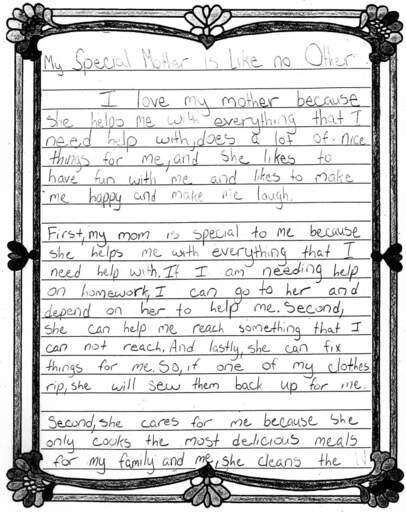 My Special Mother is Like no Other
I love my mother because
she helps me with everything that I
need help with, does a lot of nice
things for me, and she likes to
have fun with me and likes to make
me happy and make me laugh.
First, my mom is special to me because
she helps me with everything that I
need help with. If I am needing help
on homework, I can go to her and
depend on her to help me. Second,
she can help me reach something that I
can not reach. And lastly, she can fix
things for me. So, if one of my clothes
rip, she will sew them back up for me.
Second, she cares for me because she
only cooks the most delicious meals
for my family and me, she cleans the